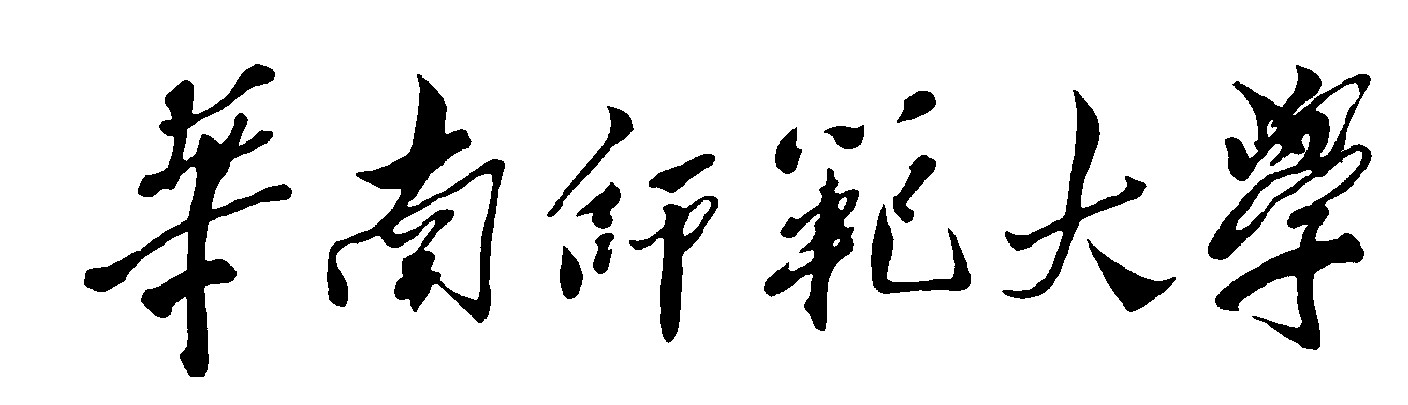 華南師範大學